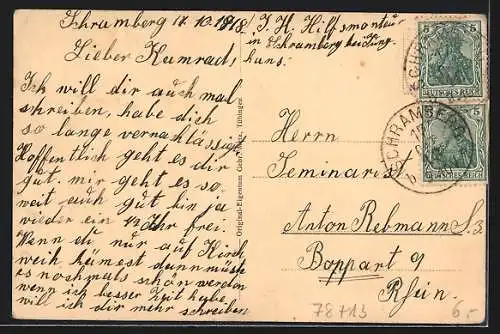 Schramberg 17.10.1918.
Lieber Kumrad,
Ich will dir auch mal
schreiben, habe dich
so lange vernachlässig
Hoffentlich geht es dir
gut. mir geht es so
weit auch gut bin ja
wieder ein 1/2 Jhr frei.
Wenn du nur auf Kirch
weih kämest dann müste
es nochmals schön werden
wenn ich besser Zeit habe
will ich dir mehr schreiben
I. H. Hilfsmonteur
in Schramberg
haus.
Original-Eigentum Gebr. Metz, Tübingen.
5
DEUTSCHES REICH
SCHRAMBERG
5
DEUTSCHES REICH
Herrn
Seminarist
Anton Rebmann S. 3
Boppart 9
Rhein.
78713
6.-